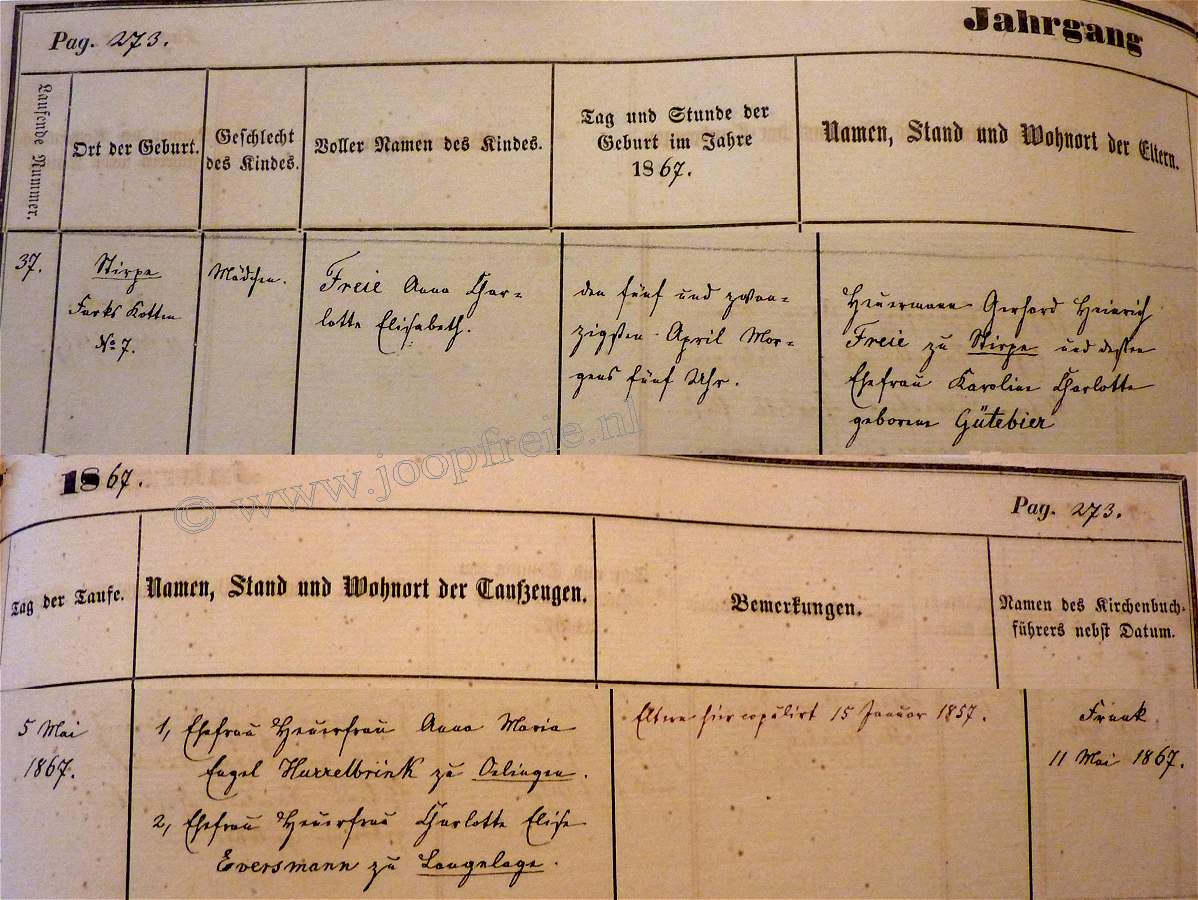 Pag. 273.
Jahrgang
Laufende Nummer.
Ort der Geburt.
Geschlecht
des Kindes.
Voller Namen des Kindes.
Tag und Stunde der
Geburt im Jahre
1867.
Namen, Stand und Wohnort der Eltern.
37.
Stirpe
Farks Kotten
No 7.
Mädchen.
Freie Anna Char-
lotte Elisabeth.
den fünf und zwan-
zigsten April Mor-
gens fünf Uhr.
Heuermann Gerhard Heinrich
Freie zu Stirpe und dessen
Ehefrau Karoline Charlotte
geborene Gütebier
© www.joopfreie.nl
1867.
Pag. 273.
Tag der Taufe.
Namen, Stand und Wohnort der Taufzeugen.
Bemerkungen.
Namen des Kirchenbuch-
führers nebst Datum.
5 Mai
1867.
1, Ehefrau Heuerfrau Anna Maria
Engel Hurrelbrink zu Oelingen.
2, Ehefrau Heuerfrau Charlotte Elise
Eversmann zu Langelage.
Eltern hier copulirt 15 Januar 1857.
Frank
11 Mai 1867.